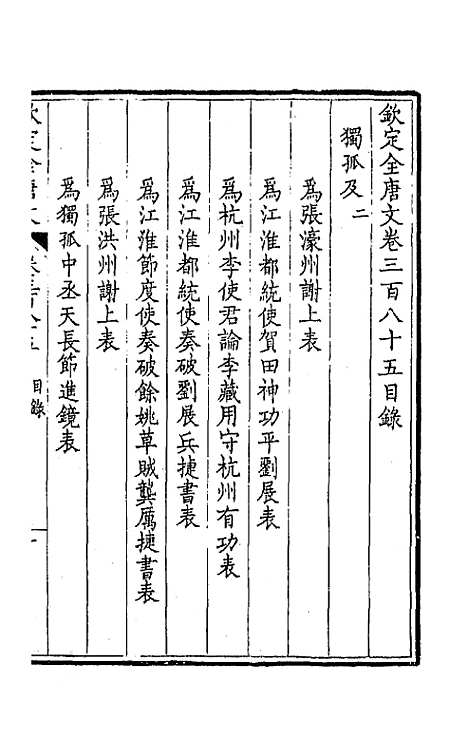 欽定全唐文卷三百八十五目錄
獨孤及二
爲張濠州謝上表
爲江淮都統使賀田神功平劉展表
爲杭州李使君論李藏用守杭州有功表
爲江淮都統使奏破劉展兵捷書表
爲江淮節度使奏破餘姚草賊龔厲捷書表
爲張洪州謝上表
爲獨孤中丞天長節進鏡表
欽定全唐文 卷三百八十五 目錄 一